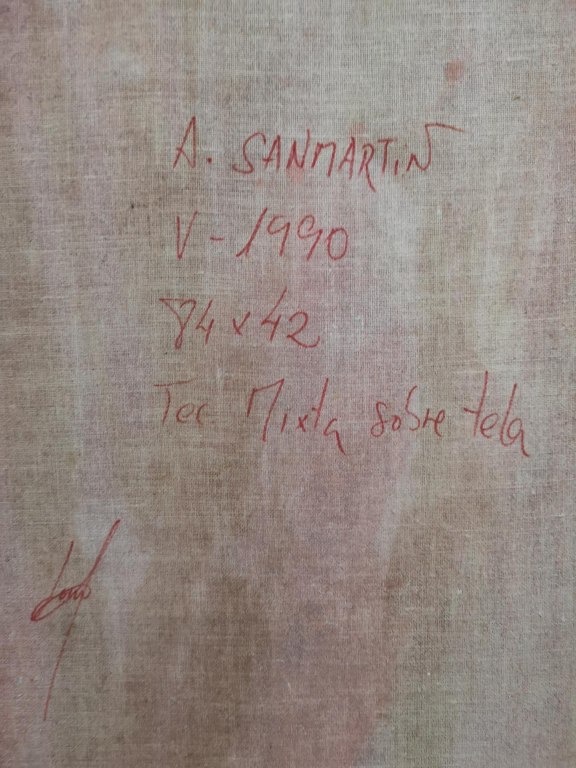 A. SANMARTIN
V-1990
84 x 42
Tec. Mixta sobre tela